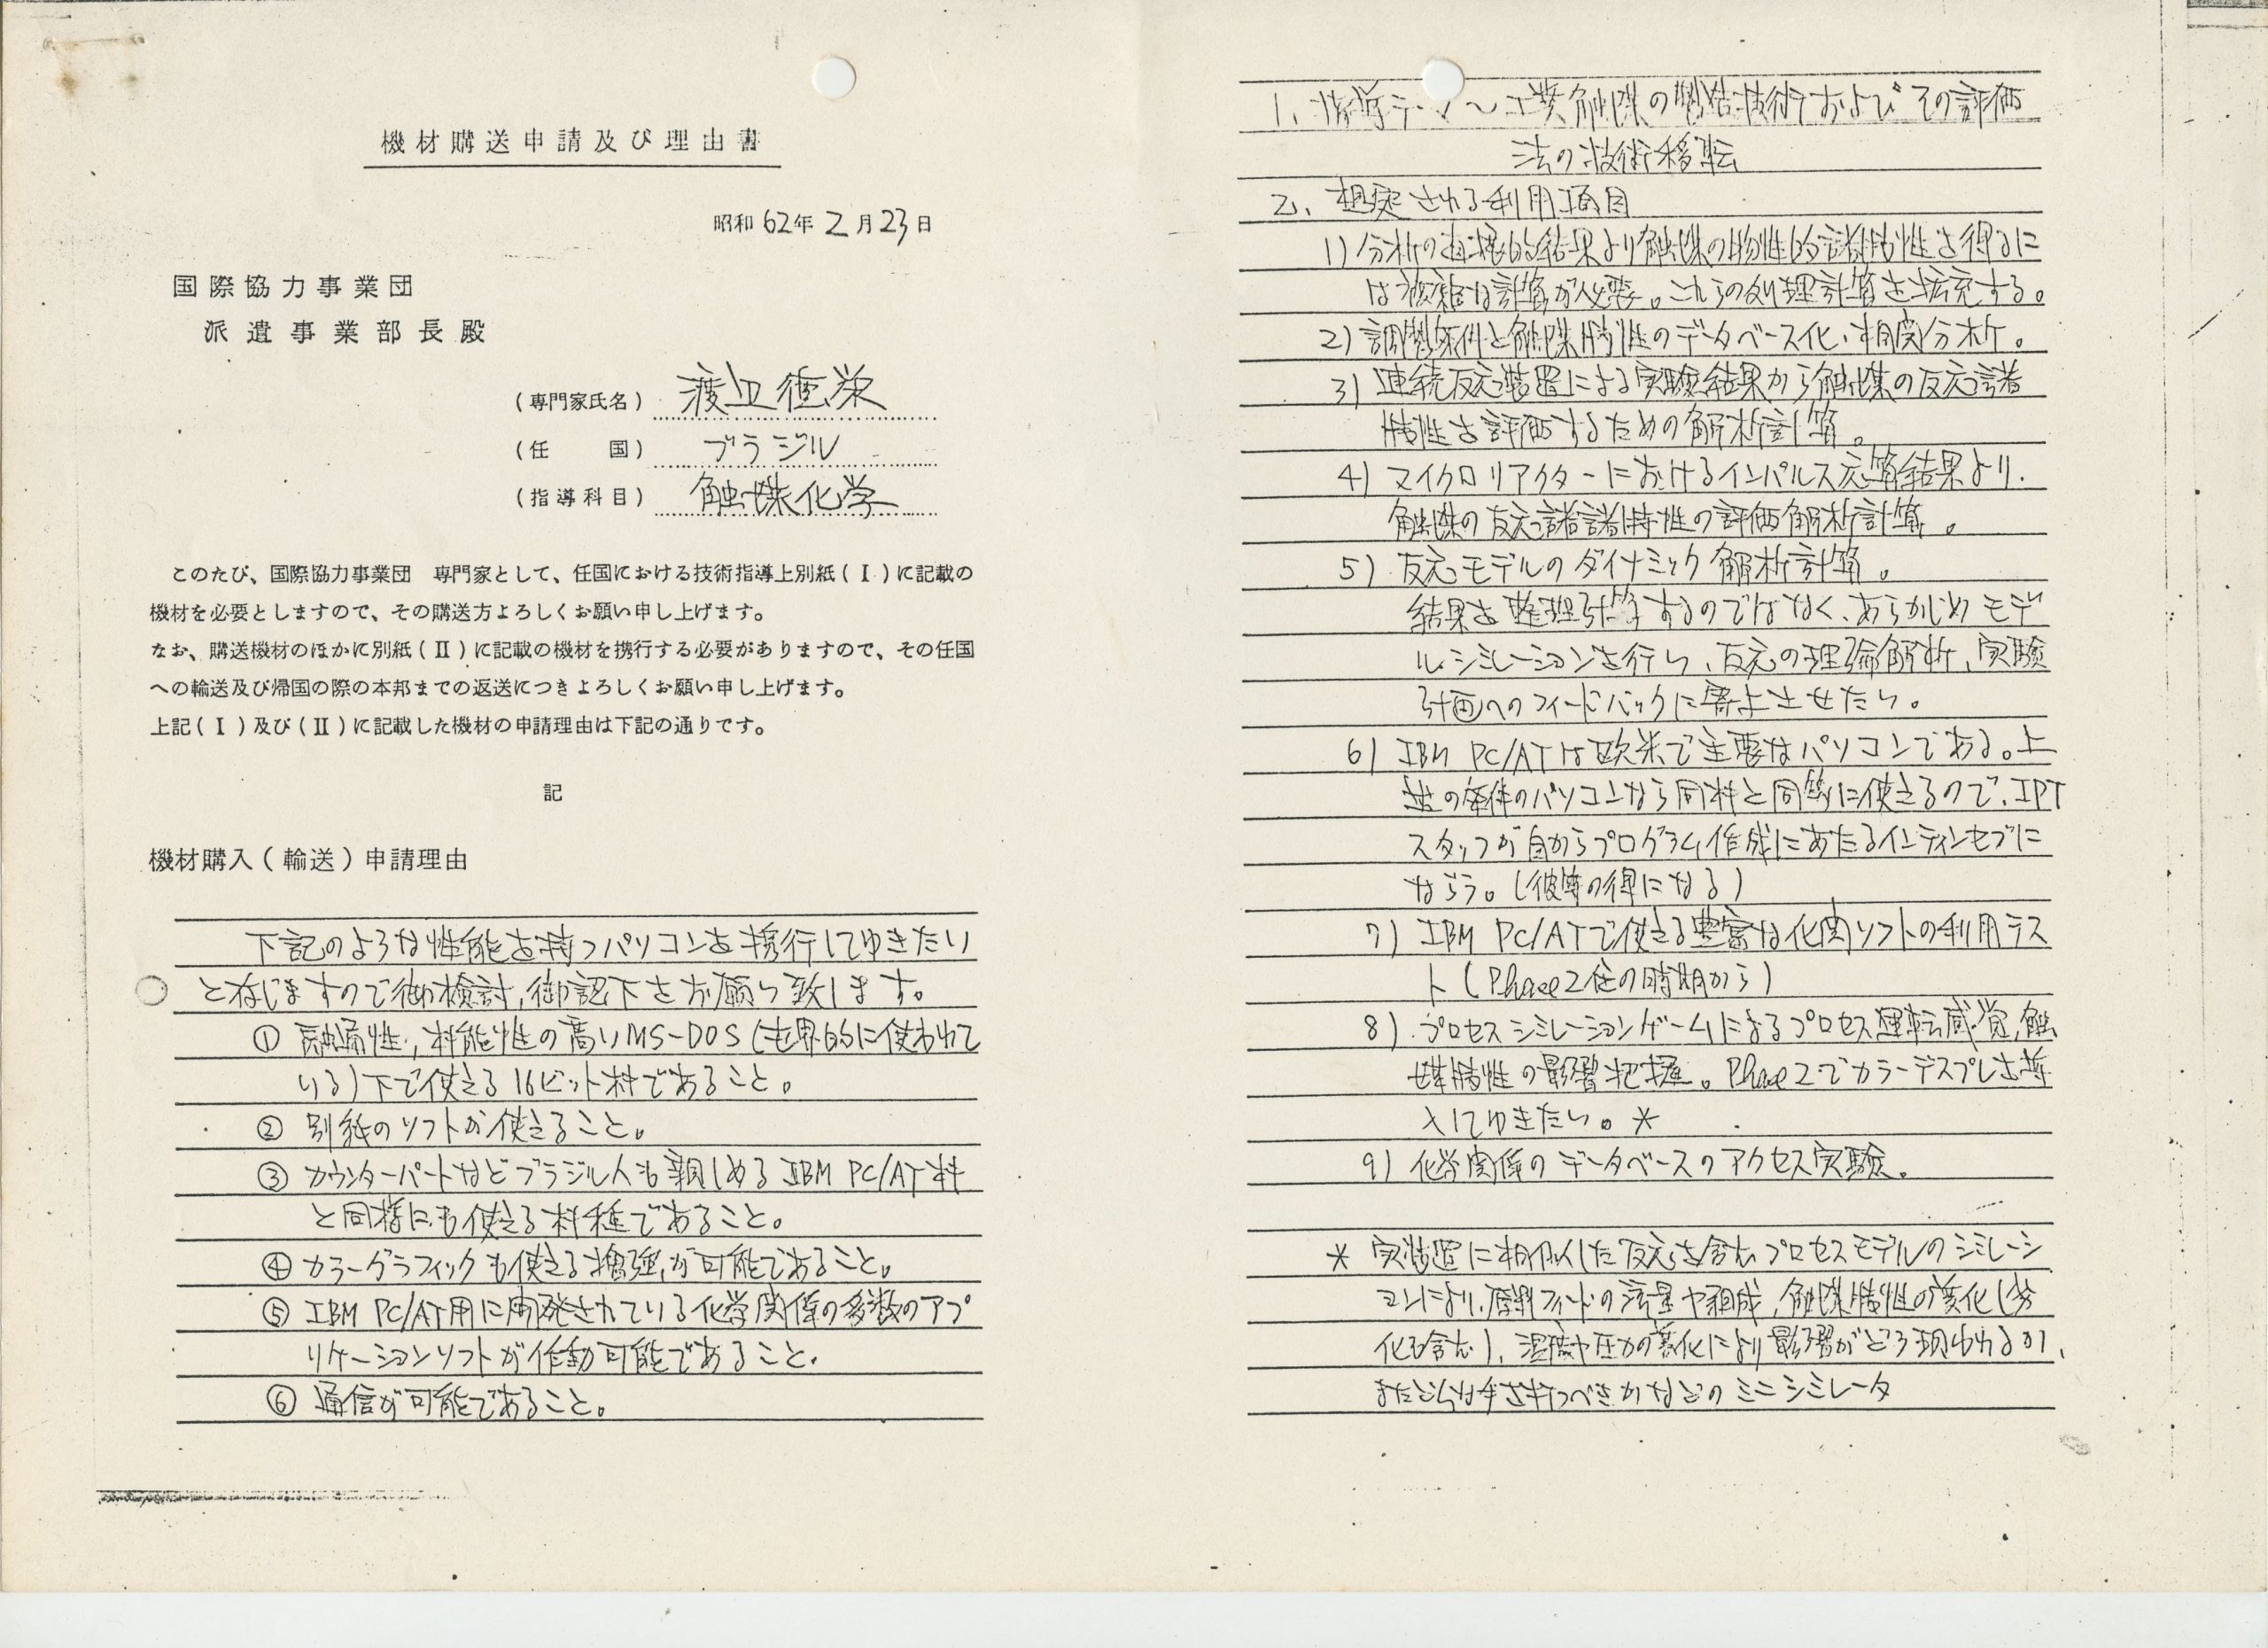 機材購送申請及び理由書
昭和 62年 2月 23日
国際協力事業団
派遣事業部長殿
(専門家氏名) 渡辺 栄
(任国) ブラジル
(指導科目) 触媒化学
このたび、国際協力事業団 専門家として、任国における技術指導上別紙(Ⅰ)に記載の
機材を必要としますので、その購送方よろしくお願い申し上げます。
なお、購送機材のほかに別紙(Ⅱ)に記載の機材を携行する必要がありますので、その任国
への輸送及び帰国の際の本邦までの返送につきよろしくお願い申し上げます。
上記(Ⅰ)及び(Ⅱ)に記載した機材の申請理由は下記の通りです。
記
機材購入(輸送)申請理由
下記のような性能を持つパソコンを携行してゆきたい
と存じますので御検討,御認下をお願い致します。
① 融通性,機能性の高いMS-DOS(世界的に使われて
いる)下で使える16ビット機であること。
② 別紙のソフトが使えること。
③ カウンターパートなどブラジル人も親しめるIBM PC/AT機
と同様にも使える機種であること。
④ カラーグラフィックも使える増強が可能であること。
⑤ IBM PC/AT用に開発されている化学関係の多数のアプ
リケーションソフトが作動可能であること.
⑥ 通信が可能であること。
1. 指導テーマ〜工業触媒の製造技術およびその評価
法の技術移転
2. 想定される利用項目
1) 分析の直接的結果より触媒の物性的諸特性を得るに
は複雑な計算が必要。これらの処理計算を拡充する。
2) 調製条件と触媒特性のデータベース化、相関分析。
3) 連続反応装置による実験結果から触媒の反応諸
特性を評価するための解析計算。
4) マイクロリアクターにおけるインパルス応答結果より.
触媒の反応諸特性の評価解析計算。
5) 反応モデルのダイナミック解析計算。
結果を整理計算するのではなく、あらかじめモデ
ル・シミレーションを行い、反応の理論解析、実験
計画へのフィードバックに寄与させたい。
6) IBM PC/ATは欧米で主要なパソコンである。上
述の条件のパソコンなら同機と同等に使えるので、IPT
スタッフが自からプログラム作成にあたるインティンセブに
なろう。(彼等の得になる)
7) IBM PC/ATで使える豊富な化関ソフトの利用テス
ト(Phase2位の時期から)
8) プロセスシミレーションゲームによるプロセス運転感覚,触
媒特性の影響把握。Phase2でカラーデスプレを導
入してゆきたい。*
9) 化学関係のデータベースのアクセス実験.
* 実装置に相似した反応を含むプロセスモデルのシミレーシ
ョンにより、原料フィードの流量や組成,触媒特性の変化(劣
化を含む)、温度や圧力の変化により影響がどう現われるか、
またどんな手を打つべきかなどのミニシミレータ